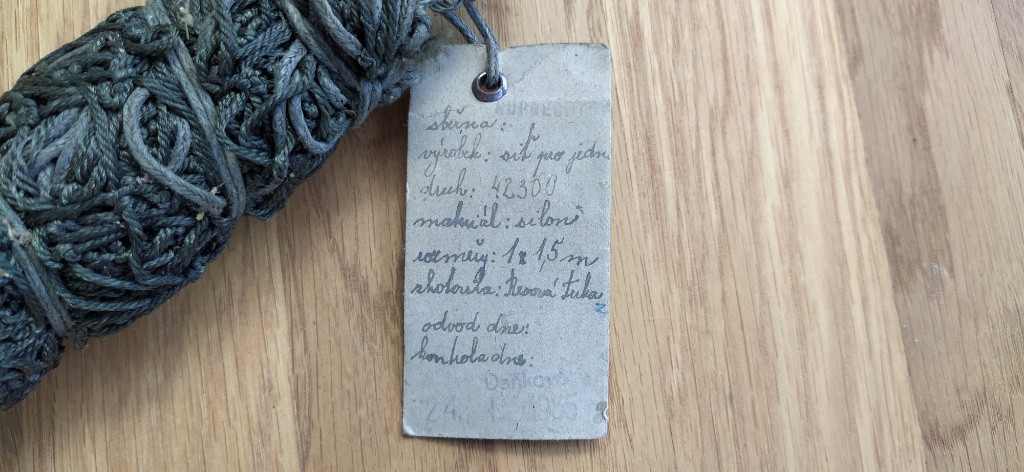 sběrna:
výrobek: síť pro jedn
druh: 42300
materiál: silon
rozměry: 1 x 1,5 m
zhotovila: Resová Luka
odvod dne:
kontrola dne:
Daňková
24.